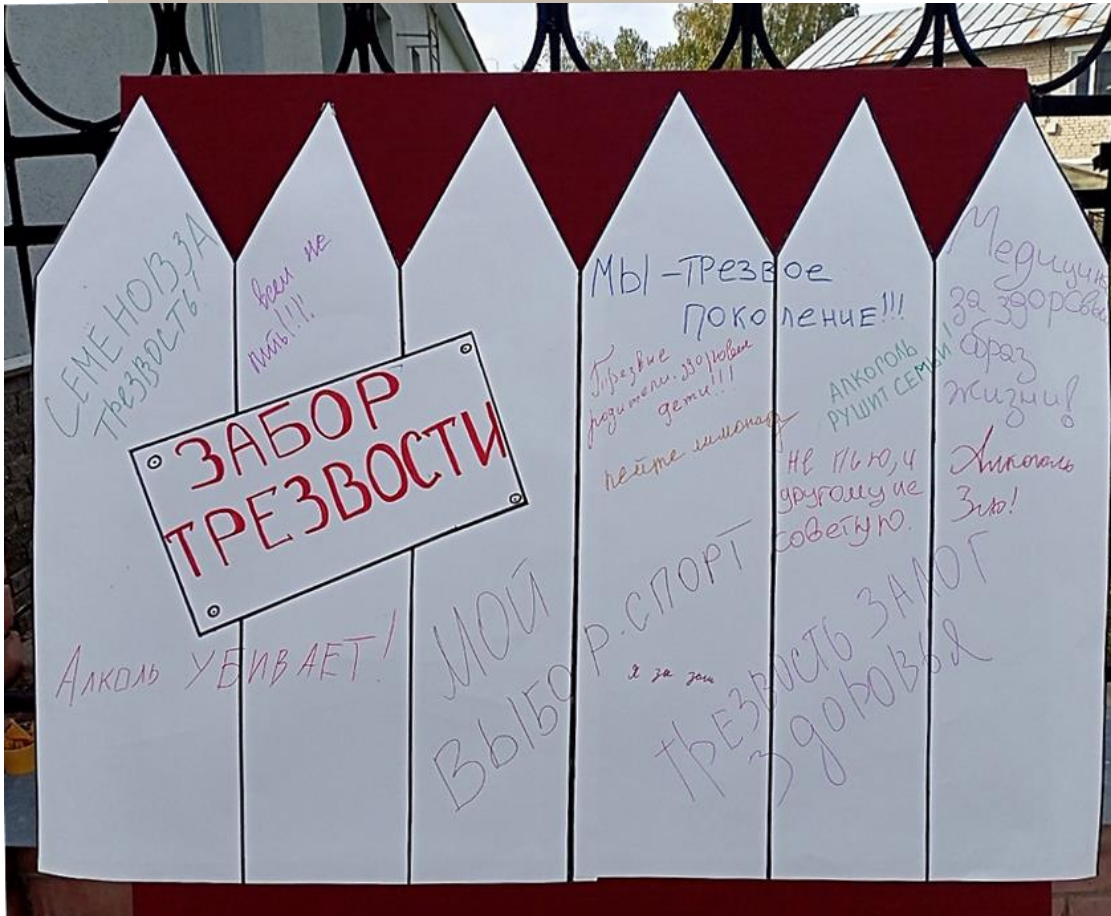 СЕМЁНО ЗА
ТРЕЗВОСТЬ!
всем не
пить!!!
ЗАБОР
ТРЕЗВОСТИ
АЛКОЛЬ УБИВАЕТ!
МОЙ
ВЫБОР. СПОРТ
МЫ - ТРЕЗВОЕ
ПОКОЛЕНИЕ!!!
Трезвые
родители. здоровые
дети!!!
пейте лимонад
АЛКОГОЛЬ
РУШИТ СЕМЬИ!
не пью, и
другому не
советую.
я за
ТРЕЗВОСТЬ ЗАЛОГ
ЗДОРОВЬЯ
Медицина
за здоровый
образ
жизни!
Алкоголь
Зло!